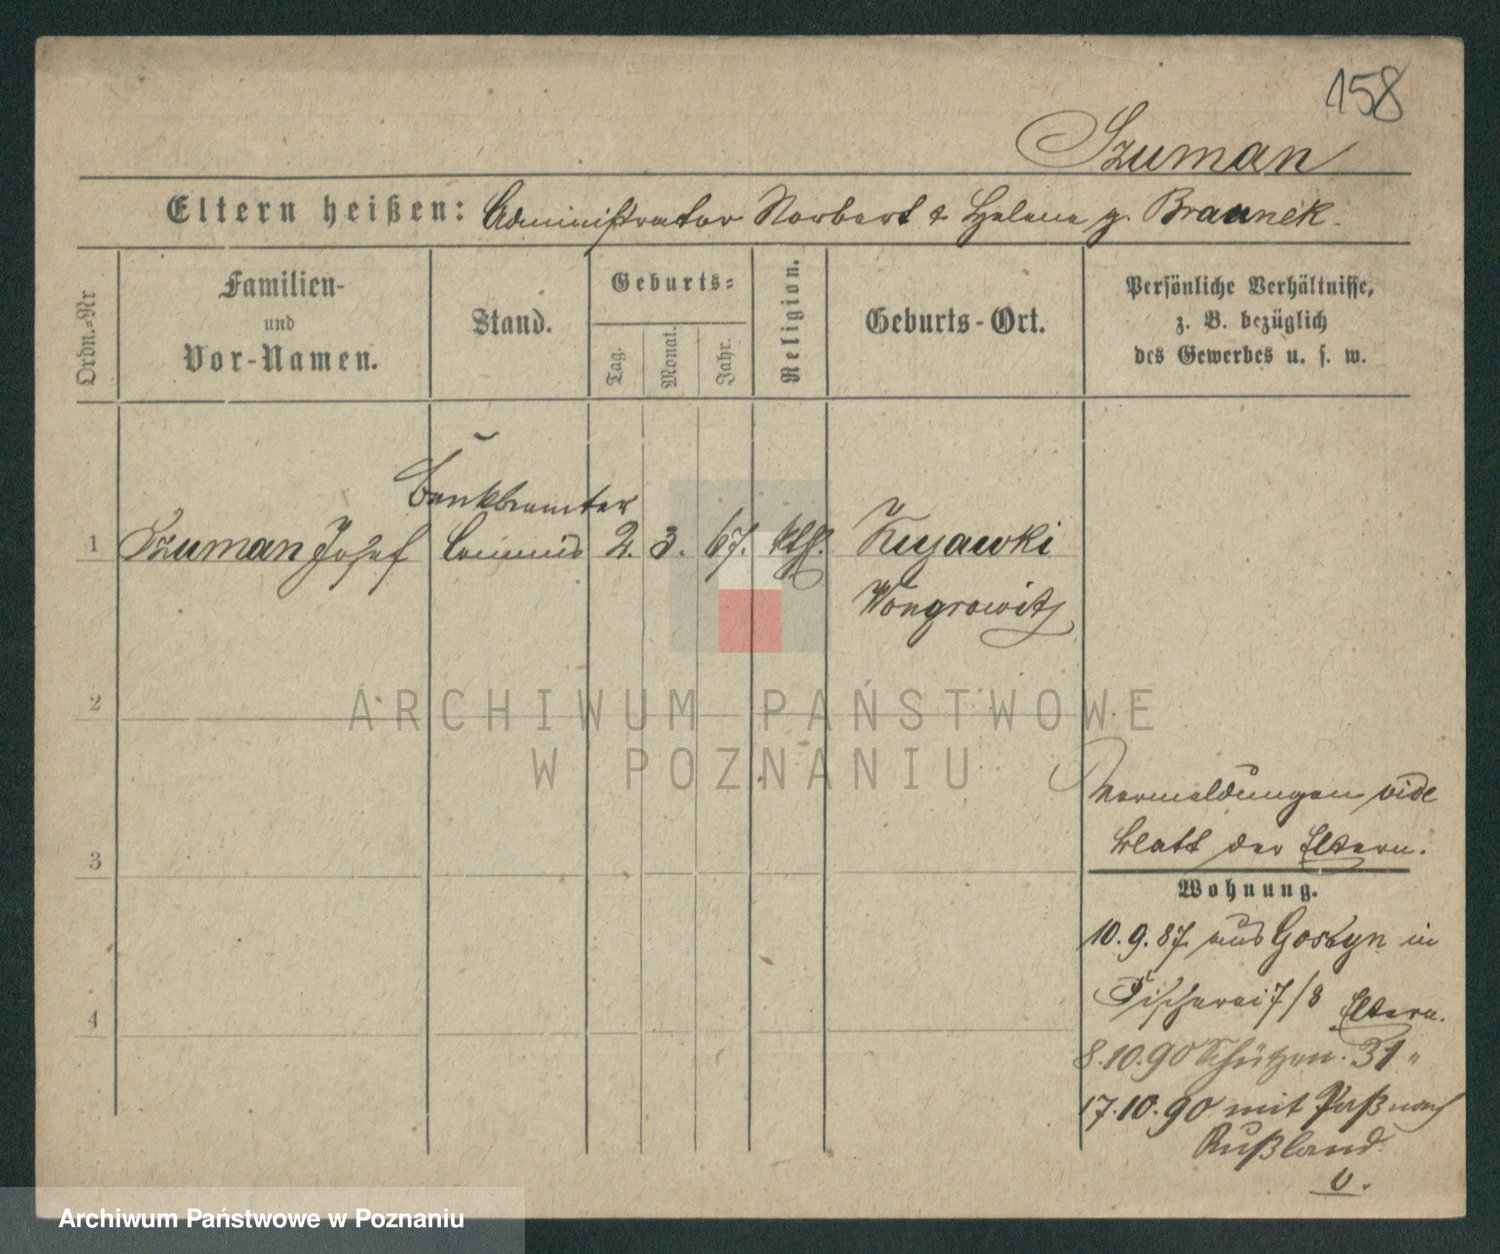 158
Szuman
Eltern heißen: Administrator Norbert & Helene g. Braunek.
Ordn.=Nr
Familien-
und
Vor-Namen.
Stand.
Geburts=
Tag.
Monat.
Jahr.
Religion.
Geburts-Ort.
Persönliche Verhältnisse,
z. B. bezüglich
des Gewerbes u. s. w.
Bankbeamter
1 Szuman Josef Commis 2. 3. 67. kth. Kujawki
Wongrowitz
2
ARCHIWUM PAŃSTWOWE
W POZNANIU
Vermeldungen vide
Blatt der Eltern.
3
Wohnung.
10.9.87. aus Gostyn in
Fischerei 7/8 Eltern.
4
8.10.90 Schützen. 31 "
17.10.90 mit Paß nach
Rußland.
v.
Archiwum Państwowe w Poznaniu